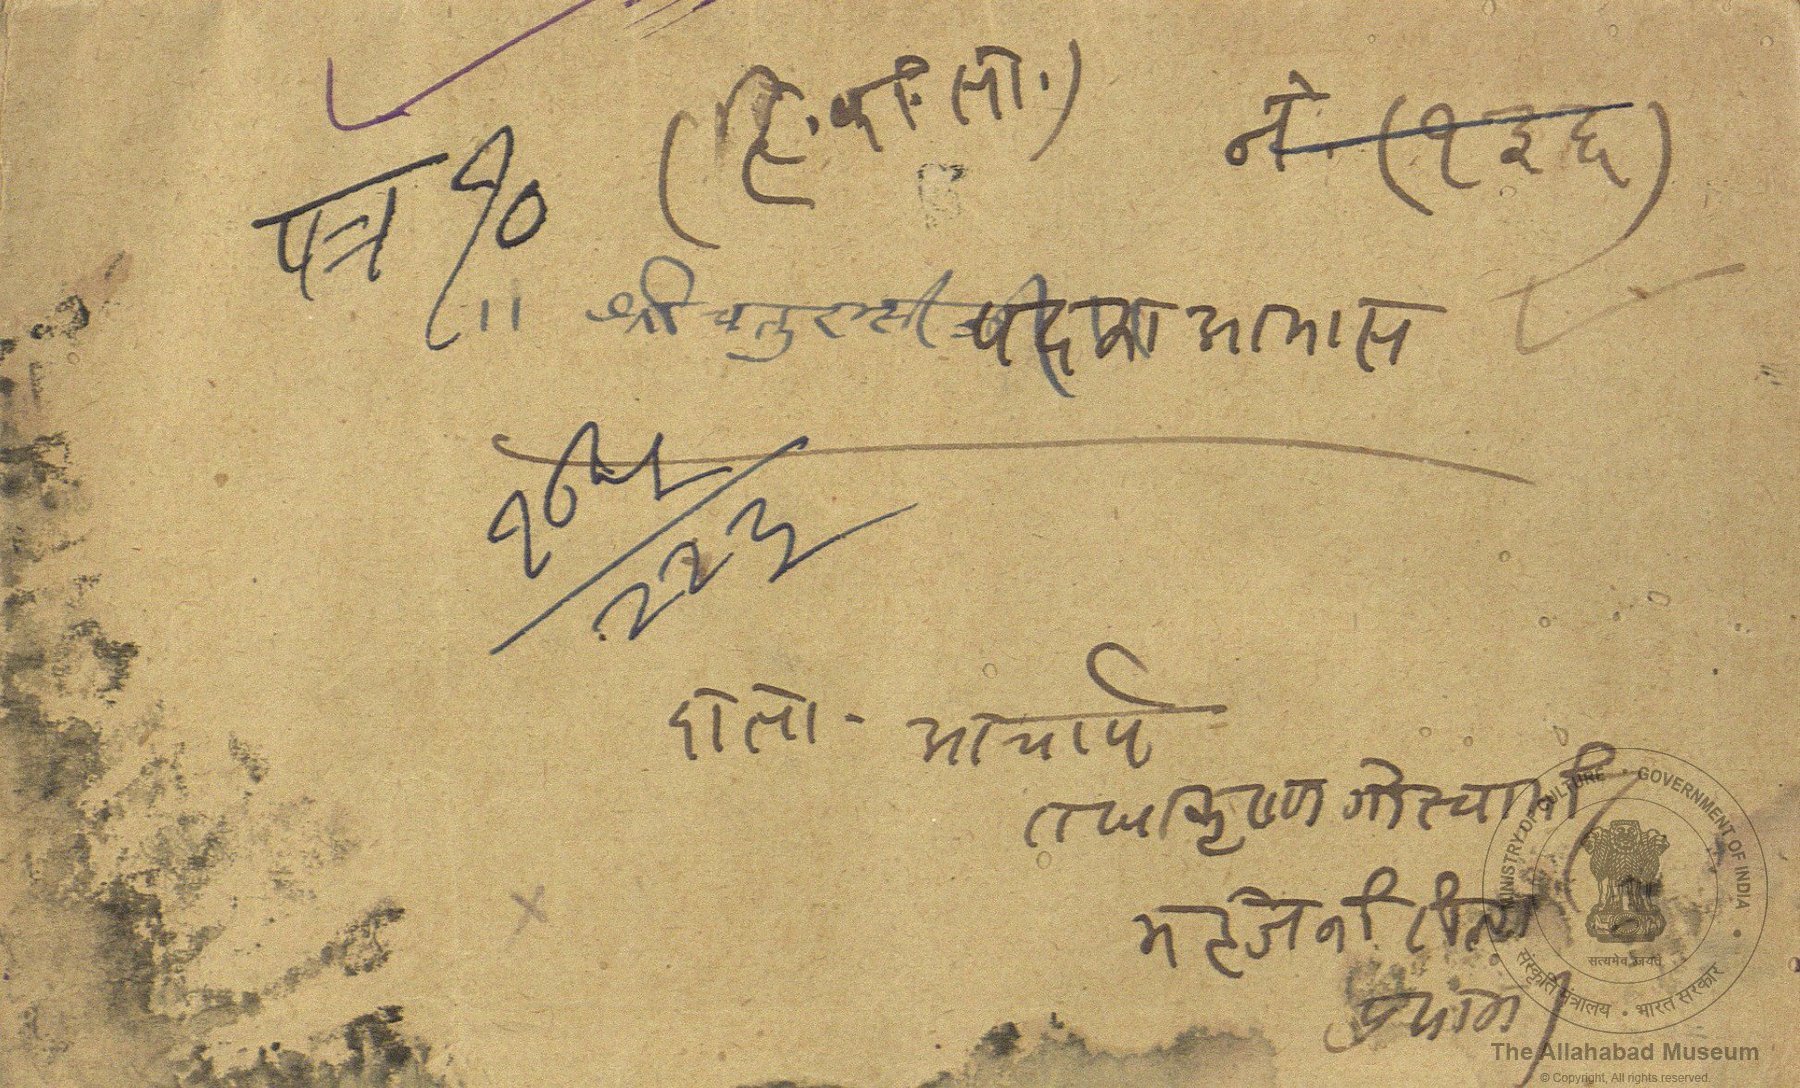 पत्र १०
(हि. का. सो.)
नं. (१३६)
॥ श्री चतुरासी जी पदका आभास
१८५
२२३
दाता - आचार्य
राधाकृष्ण गोस्वामी
प्रयाग
MINISTRY OF CULTURE • GOVERNMENT OF INDIA
सत्यमेव जयते
संस्कृति मंत्रालय • भारत सरकार
The Allahabad Museum
© Copyright, All rights reserved.